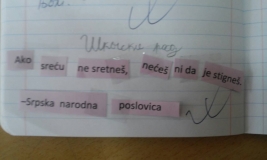 Ako sreću ne sretneš, nećeš ni da je stigneš.
–Srpska narodna poslovica